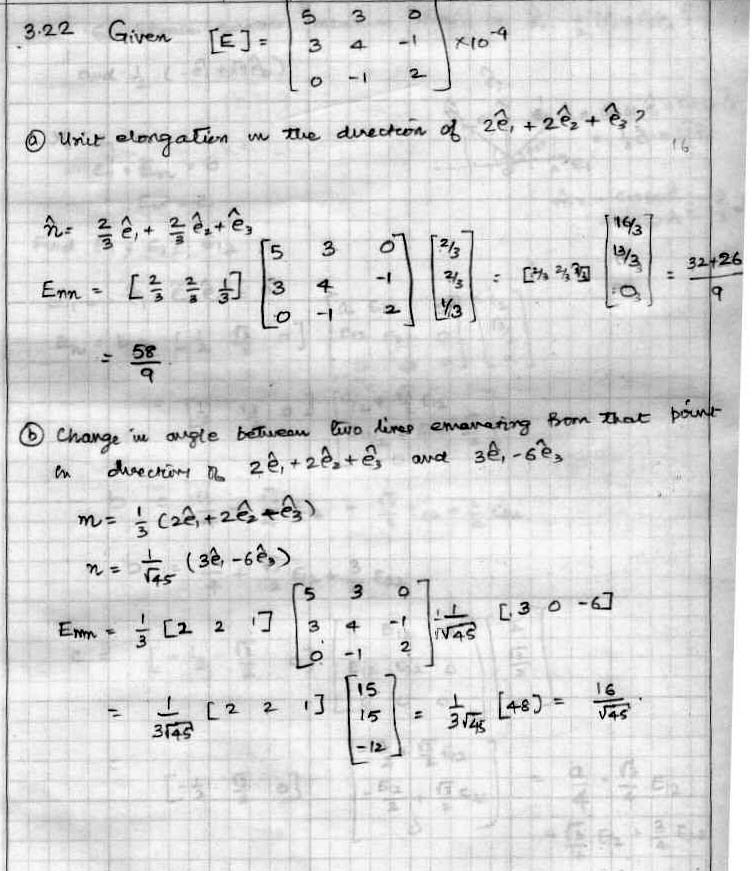 3.22 Given [E] = [5 3 0; 3 4 -1; 0 -1 2] ×10⁻⁴
ⓐ Unit elongation in the direction of 2ê₁ + 2ê₂ + ê₃?
16
n̂ = 2/3 ê₁ + 2/3 ê₂ + ê₃
Enn = [2/3 2/3 1/3] [5 3 0; 3 4 -1; 0 -1 2] [2/3; 2/3; 1/3] = [2/3 2/3 1/3] [16/3; 13/3; 0] = 32+26/9
= 58/9
ⓑ Change in angle between two lines emanating from that point
in direction of 2ê₁ + 2ê₂ + ê₃ and 3ê₁ - 6ê₃
m = 1/3 (2ê₁ + 2ê₂ + ê₃)
n = 1/√45 (3ê₁ - 6ê₃)
Emn = 1/3 [2 2 1] [5 3 0; 3 4 -1; 0 -1 2] 1/√45 [3 0 -6]
= 1/3√45 [2 2 1] [15; 15; -12] = 1/3√45 [48] = 16/√45.